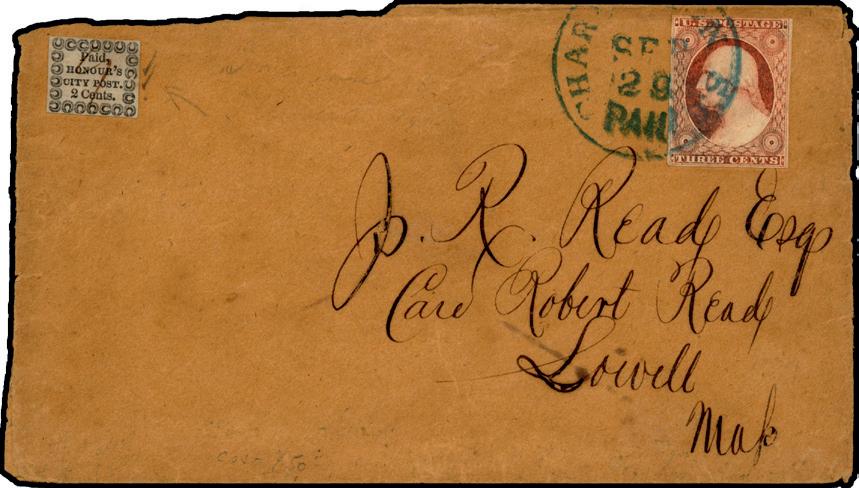 Paid,
HONOUR'S
CITY POST.
2 Cents.
SEP
29
PAID
U.S. POSTAGE
THREE CENTS
J. R. Read Esq
Care Robert Read
Lowell
Maſs